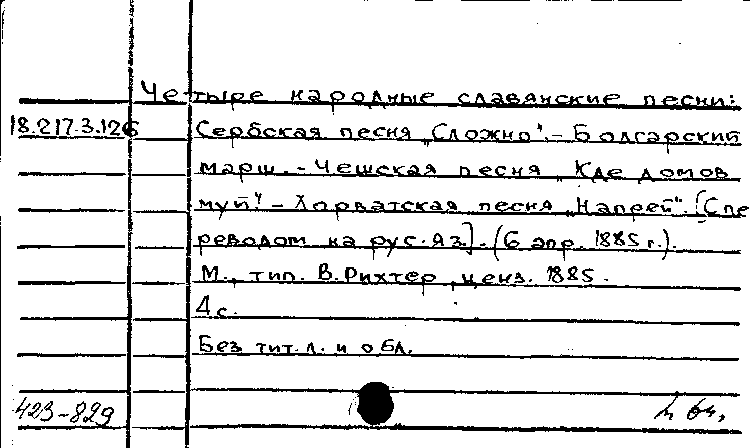 Четыре народные славянские песни:
18.217.3.126 Сербская песня „Сложно“.- Болгарский
марш. - Чешская песня „Кде домов
муй“. - Хорватская песня „Напрей“. [С пе
реводом на рус. яз]. (6 апр. 1885 г.).
М., тип. В. Рихтер, ценз. 1885.
4 с.
Без тит. л. и обл.
423-829